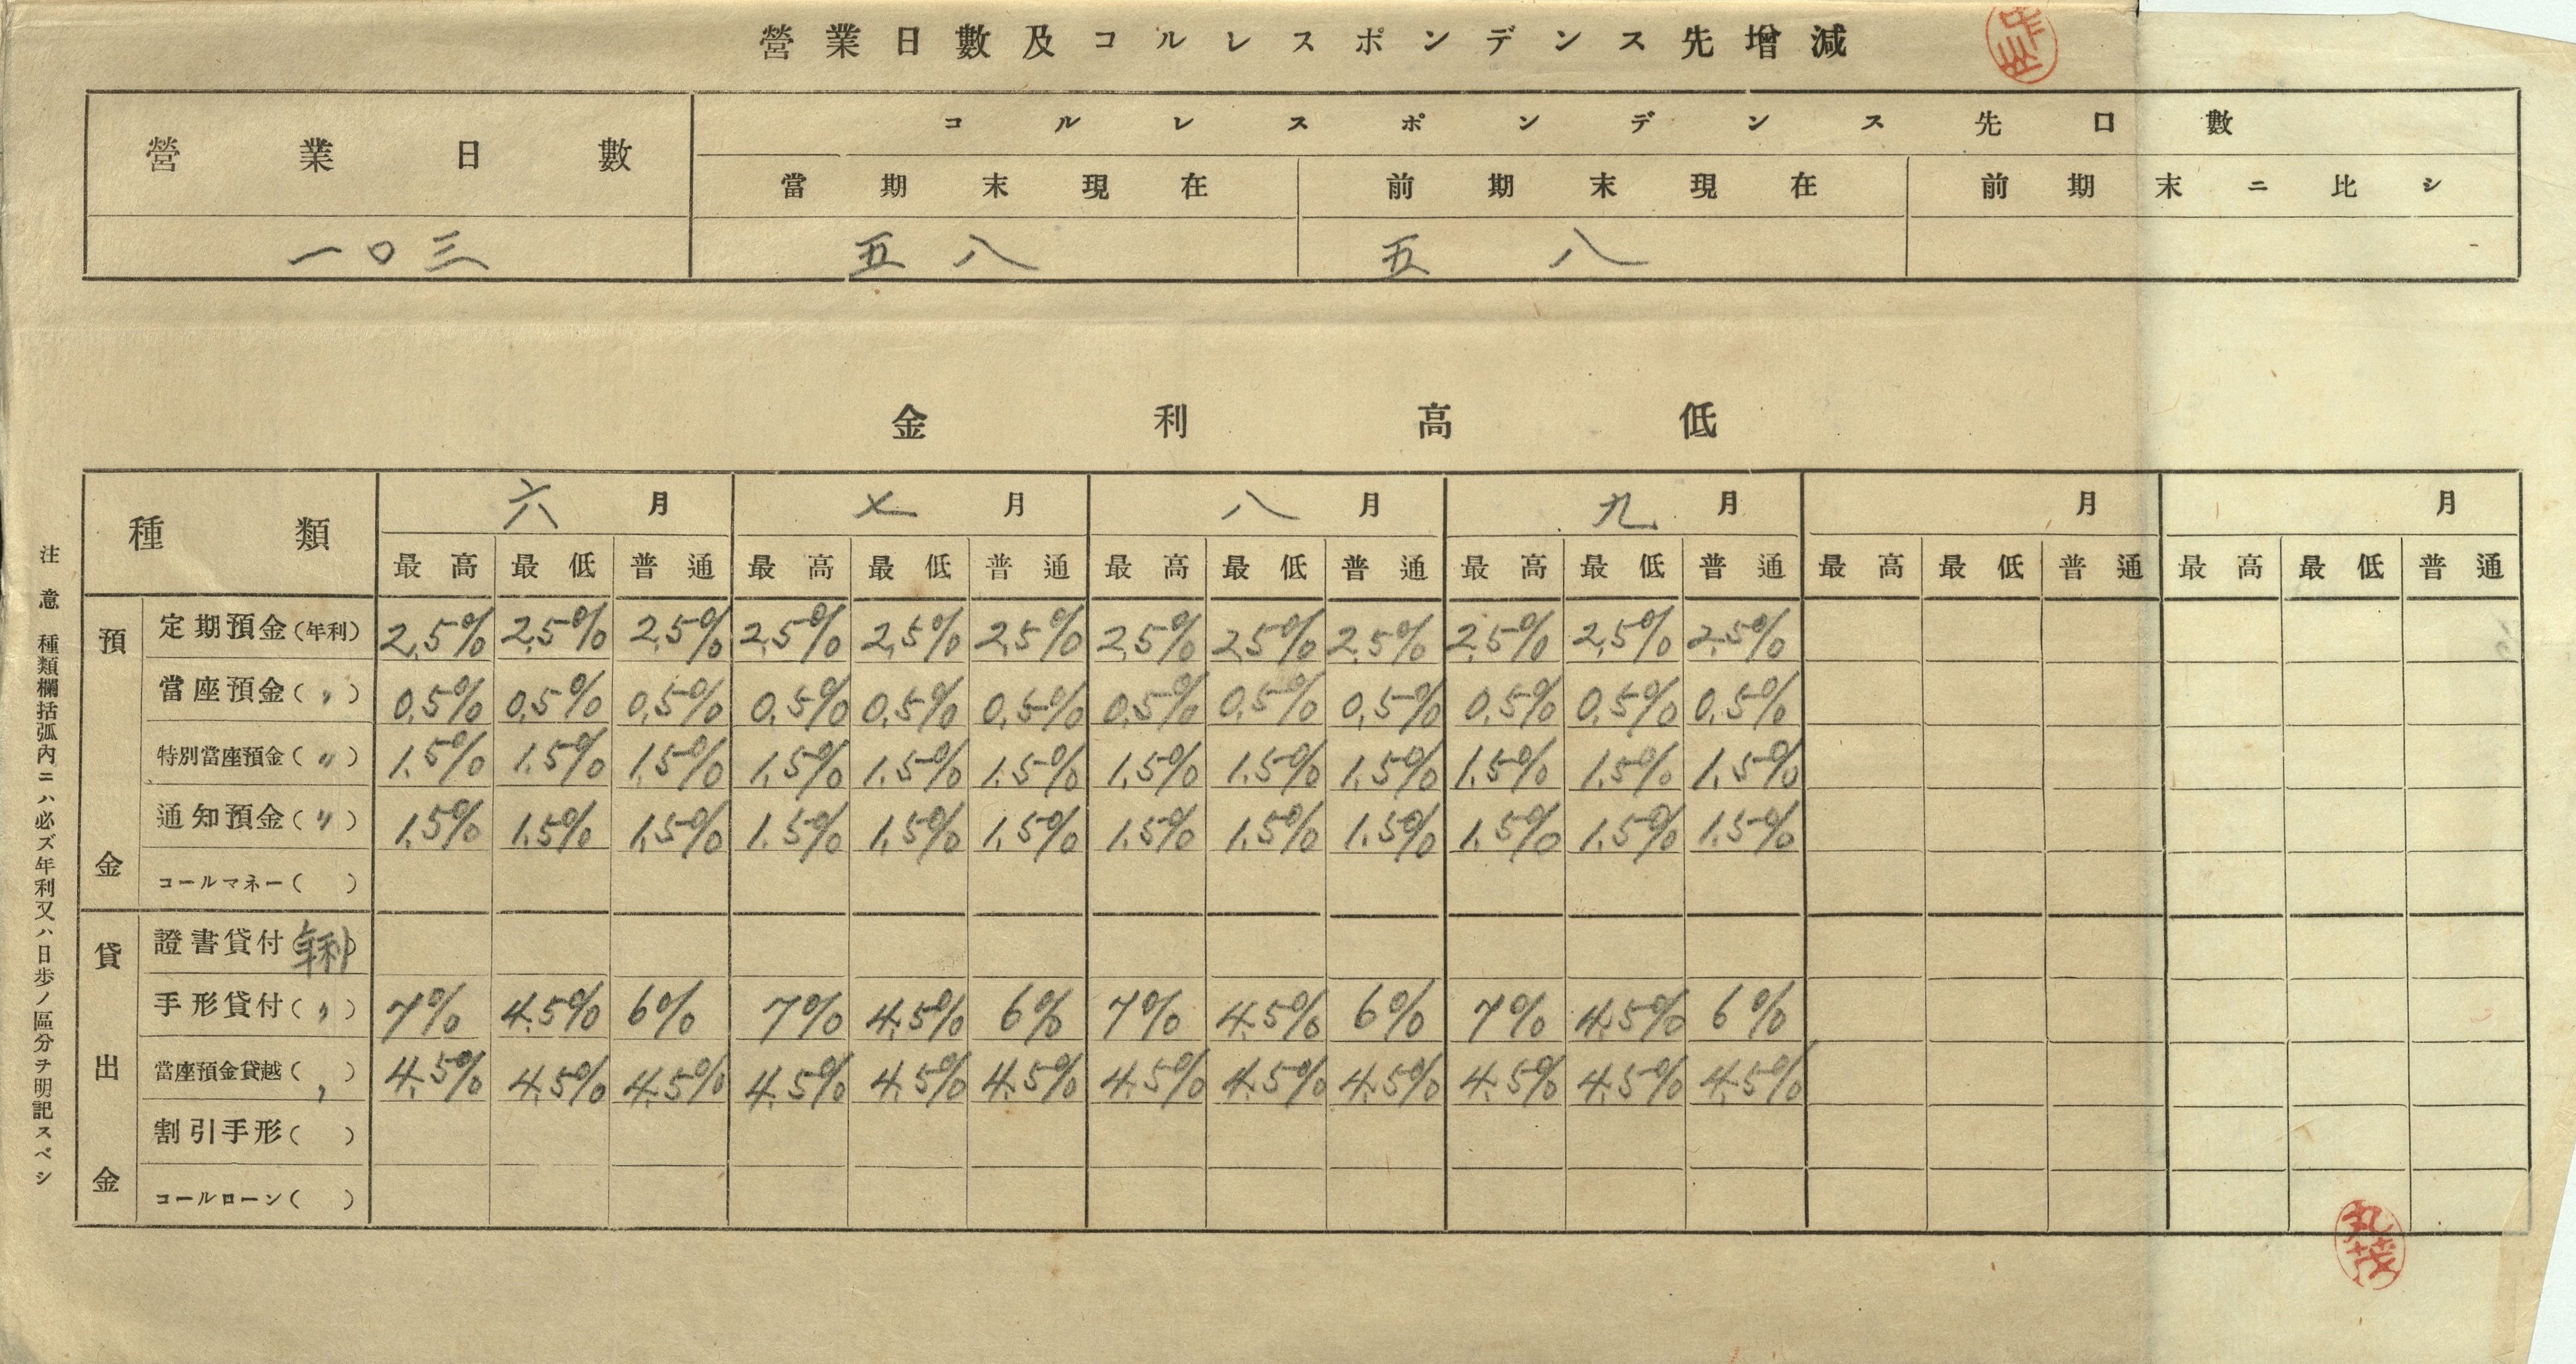 營業日數及コルレスポンデンス先增減
營業日數
コルレスポンデンス先口數
當期末現在 前期末現在 前期末ニ比シ
一〇三 五八 五八
金利高低
種類 六月 七月 八月 九月 月 月
最高 最低 普通 最高 最低 普通 最高 最低 普通 最高 最低 普通 最高 最低 普通 最高 最低 普通
預金
定期預金(年利) 2.5% 2.5% 2.5% 2.5% 2.5% 2.5% 2.5% 2.5% 2.5% 2.5% 2.5% 2.5%
當座預金(〃) 0.5% 0.5% 0.5% 0.5% 0.5% 0.5% 0.5% 0.5% 0.5% 0.5% 0.5% 0.5%
特別當座預金(〃) 1.5% 1.5% 1.5% 1.5% 1.5% 1.5% 1.5% 1.5% 1.5% 1.5% 1.5% 1.5%
通知預金(〃) 1.5% 1.5% 1.5% 1.5% 1.5% 1.5% 1.5% 1.5% 1.5% 1.5% 1.5% 1.5%
コールマネー( )
貸出金
證書貸付(年利)
手形貸付(〃) 7% 4.5% 6% 7% 4.5% 6% 7% 4.5% 6% 7% 4.5% 6%
當座預金貸越(〃) 4.5% 4.5% 4.5% 4.5% 4.5% 4.5% 4.5% 4.5% 4.5% 4.5% 4.5% 4.5%
割引手形( )
コールローン( )
注意 種類欄括弧內ニハ必ズ年利又ハ日步ノ區分ヲ明記スベシ